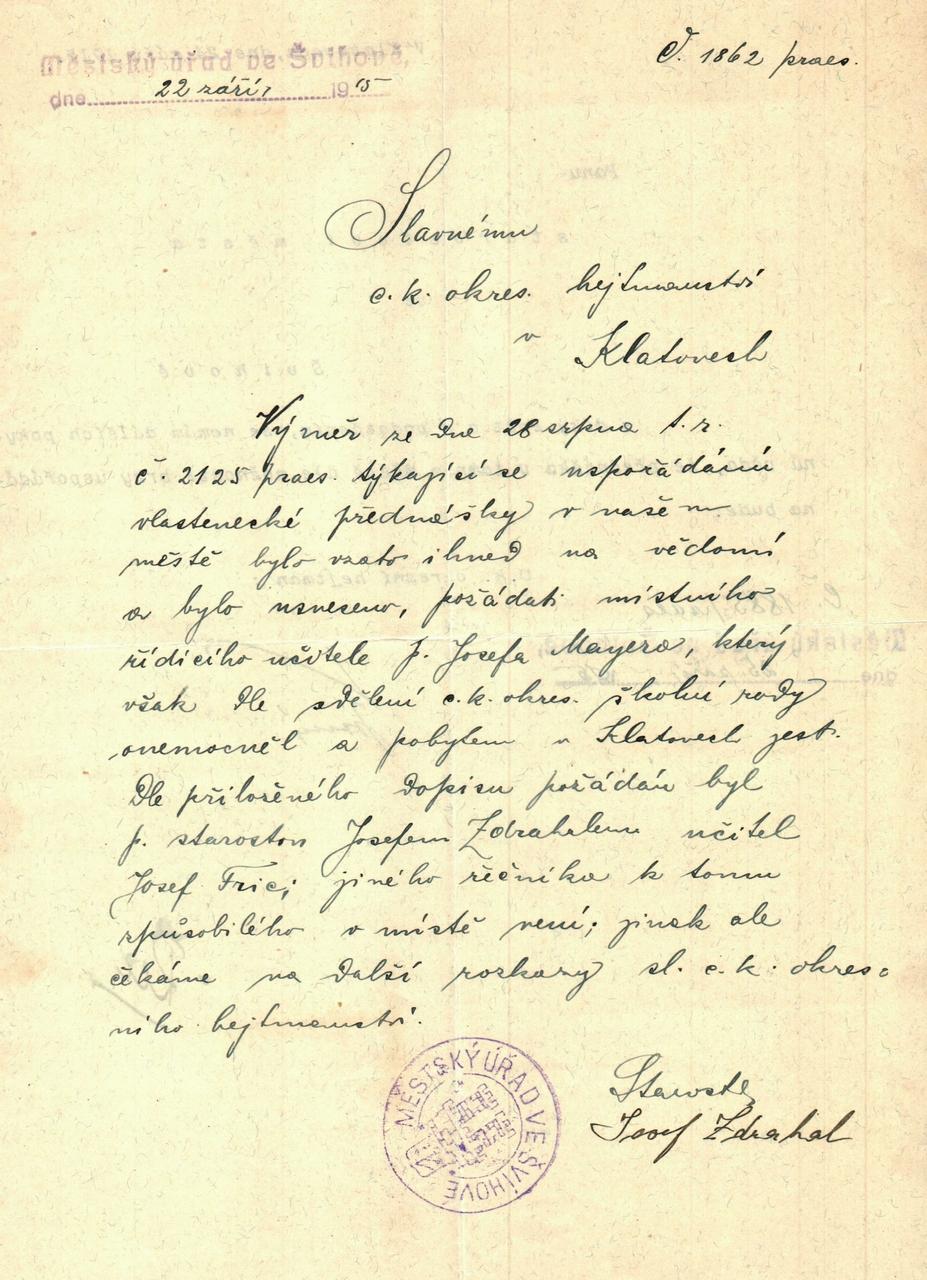 Městský úřad ve Švihově,
dne 22 září, 1915
Č. 1862 praes.
Slavnému
c. k. okres. hejtmanství
v
Klatovech
Výměr ze dne 28 srpna t. r.
č. 2125 praes. týkající se uspořádání
vlastenecké přednášky v našem
městě bylo vzato ihned na vědomí
a bylo usneseno, požádati místního
řídícího učitele p. Josefa Mayera, který
však dle sdělení c. k. okres. školní rady
onemocněl a pobytem v Klatovech jest.
Dle přiloženého dopisu požádán byl
p. starostou Josefem Zdrahalem učitel
Josef Fric; jiného řečníka k tomu
způsobilého v místě není; jinak ale
čekáme na další rozkazy sl. c. k. okres-
ního hejtmanství.
Starosta
Josef Zdrahal
MĚSTSKÝ ÚŘAD VE ŠVIHOVĚ